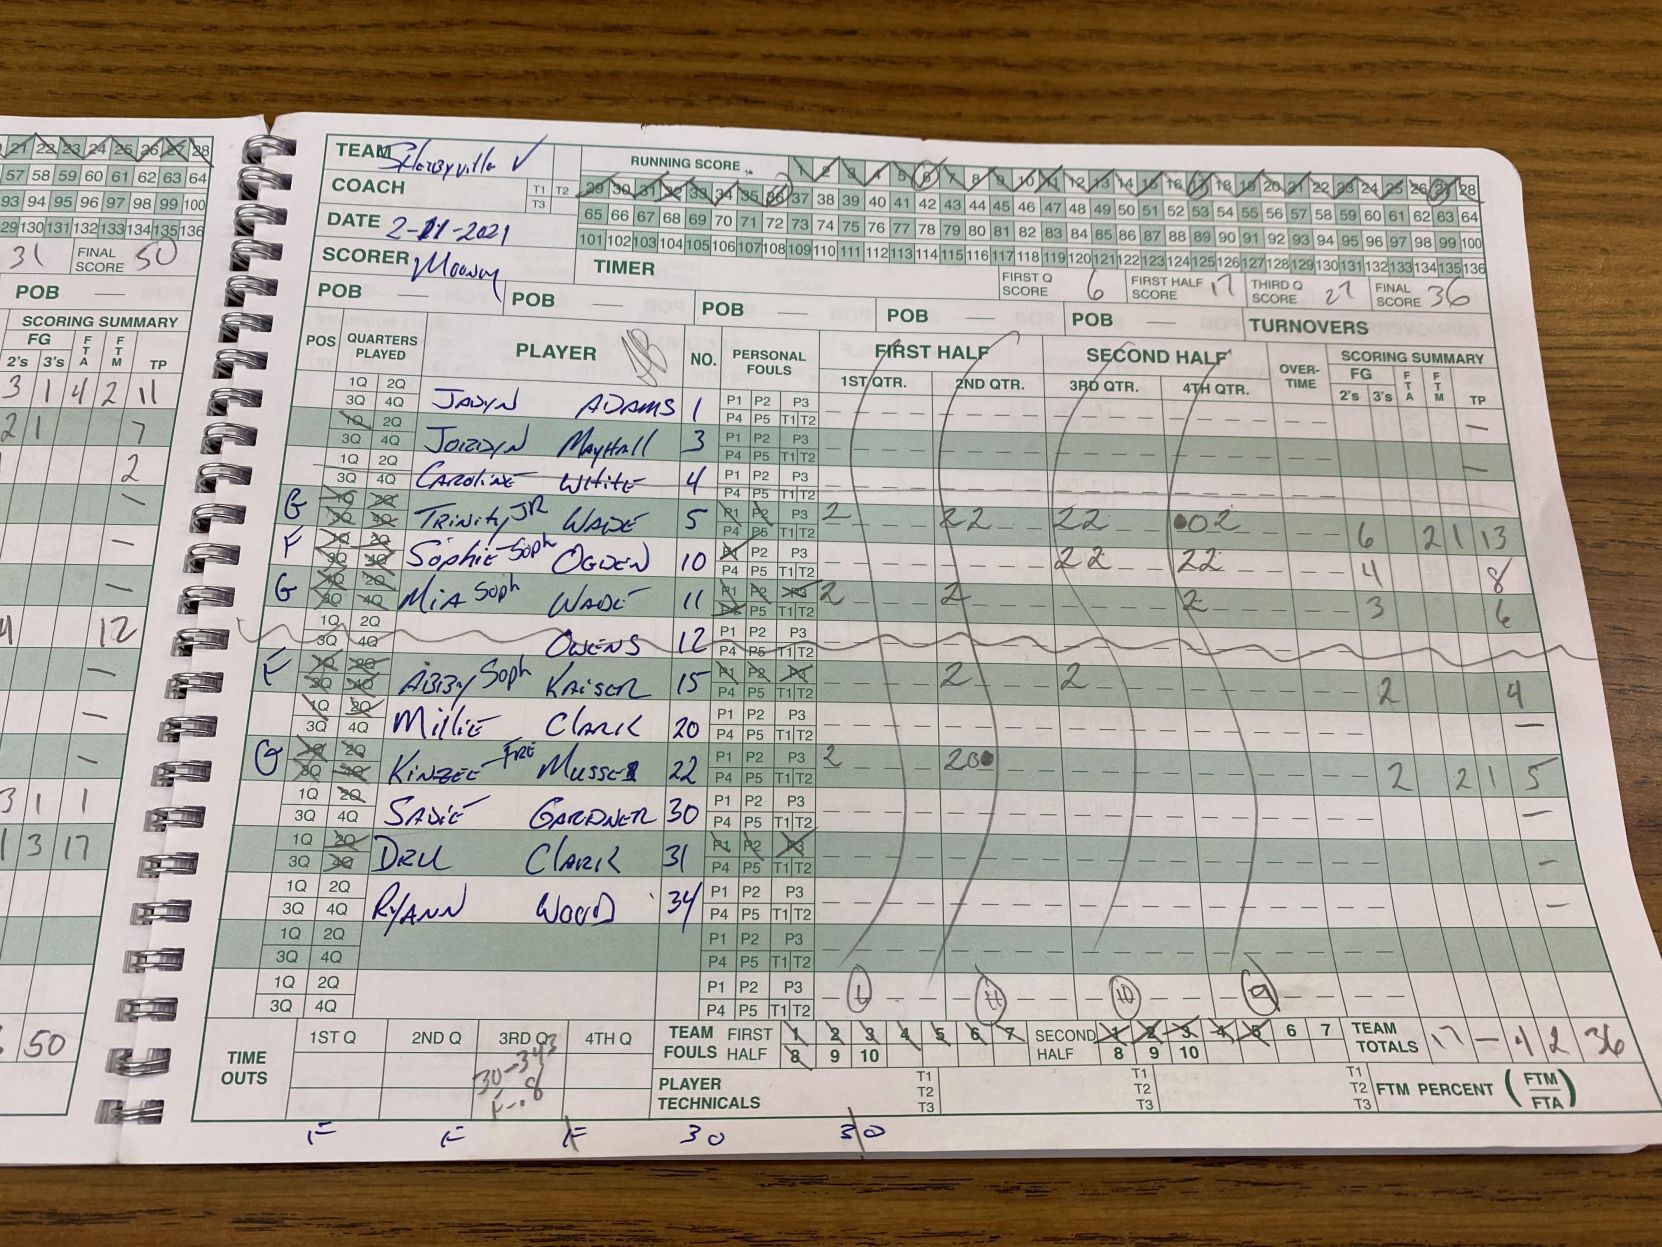 21 22 23 24 25 26 27 28
57 58 59 60 61 62 63 64
93 94 95 96 97 98 99 100
29 130 131 132 133 134 135 136
31 FINAL SCORE 50
POB —
SCORING SUMMARY
FG FTA FTM TP
2's 3's
3 1 4 2 11
2 1 7
2
12
3 1 1
1 3 17
50
TEAM Shelbyville ✓
COACH
T1 T2
T3
DATE 2-11-2021
SCORER Mooney
TIMER
RUNNING SCORE
1 2 3 4 5 6 7 8 9 10 11 12 13 14 15 16 17 18 19 20 21 22 23 24 25 26 27 28
29 30 31 32 33 34 35 36 37 38 39 40 41 42 43 44 45 46 47 48 49 50 51 52 53 54 55 56 57 58 59 60 61 62 63 64
65 66 67 68 69 70 71 72 73 74 75 76 77 78 79 80 81 82 83 84 85 86 87 88 89 90 91 92 93 94 95 96 97 98 99 100
101 102 103 104 105 106 107 108 109 110 111 112 113 114 115 116 117 118 119 120 121 122 123 124 125 126 127 128 129 130 131 132 133 134 135 136
FIRST Q SCORE 6 FIRST HALF SCORE 17 THIRD Q SCORE 27 FINAL SCORE 36
POB — POB — POB — POB — POB — TURNOVERS
POS QUARTERS PLAYED PLAYER NO. PERSONAL FOULS FIRST HALF SECOND HALF OVER-TIME SCORING SUMMARY
1ST QTR. 2ND QTR. 3RD QTR. 4TH QTR. FG FTA FTM TP
2's 3's
1Q 2Q 3Q 4Q JADYN ADAMS 1 P1 P2 P3 P4 P5 T1 T2 —
1Q 2Q 3Q 4Q JORDYN MAYHALL 3 P1 P2 P3 P4 P5 T1 T2 —
1Q 2Q 3Q 4Q CAROLINE WHITE 4 P1 P2 P3 P4 P5 T1 T2
G 1Q 2Q 3Q 4Q TRINITY JR WADE 5 P1 P2 P3 P4 P5 T1 T2 2 22 22 02 6 2 1 13
F 1Q 2Q 3Q 4Q SOPHIE Soph OGDEN 10 P1 P2 P3 P4 P5 T1 T2 22 22 4 8
G 1Q 2Q 3Q 4Q MIA Soph WADE 11 P1 P2 P3 P4 P5 T1 T2 2 2 2 3 6
1Q 2Q 3Q 4Q OWENS 12 P1 P2 P3 P4 P5 T1 T2
F 1Q 2Q 3Q 4Q ABBY Soph KAISER 15 P1 P2 P3 P4 P5 T1 T2 2 2 2 4
1Q 2Q 3Q 4Q MILLIE CLARK 20 P1 P2 P3 P4 P5 T1 T2 —
G 1Q 2Q 3Q 4Q KINZEE FRE MUSSER 22 P1 P2 P3 P4 P5 T1 T2 2 20 2 2 1 5
1Q 2Q 3Q 4Q SADIE GARDNER 30 P1 P2 P3 P4 P5 T1 T2 —
1Q 2Q 3Q 4Q DRU CLARK 31 P1 P2 P3 P4 P5 T1 T2 —
1Q 2Q 3Q 4Q RYANN WOOD 34 P1 P2 P3 P4 P5 T1 T2 —
1Q 2Q 3Q 4Q P1 P2 P3 P4 P5 T1 T2
1Q 2Q 3Q 4Q P1 P2 P3 P4 P5 T1 T2 6 11 10 9
TIME OUTS 1ST Q 2ND Q 3RD Q 4TH Q
30-343
F-.8
TEAM FOULS FIRST HALF 1 2 3 4 5 6 7 8 9 10 SECOND HALF 1 2 3 4 5 6 7 8 9 10
TEAM TOTALS 17 — 4 2 36
PLAYER TECHNICALS T1 T2 T3 T1 T2 T3 T1 T2 T3
FTM PERCENT (FTM/FTA)
F F F 30 30